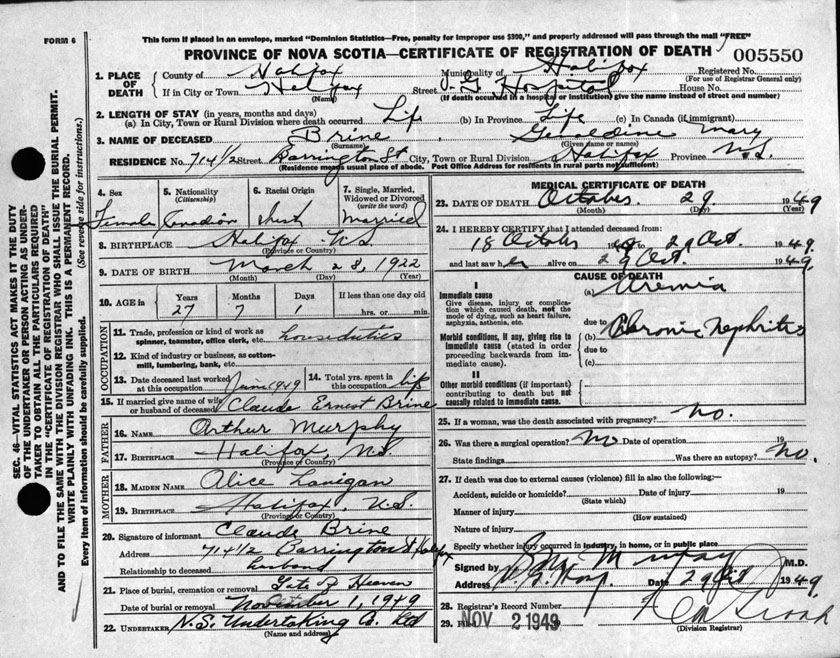 FORM 6
This form if placed in an envelope, marked "Dominion Statistics—Free, penalty for improper use $300," and properly addressed will pass through the mail "FREE"
PROVINCE OF NOVA SCOTIA—CERTIFICATE OF REGISTRATION OF DEATH
005550
1. PLACE OF DEATH { County of Halifax Municipality of Halifax Registered No.
(For use of Registrar General only)
If in City or Town Halifax Street V. G. Hospital House No.
(Name) (If death occurred in a hospital or institution, give the name instead of street and number)
2. LENGTH OF STAY (in years, months and days)
(a) In City, Town or Rural Division where death occurred Life (b) In Province Life (c) In Canada (if immigrant)
3. NAME OF DECEASED Brine Geraldine Mary
(Surname) (Given name or names)
RESIDENCE No. 714 1/2 Street Barrington St City, Town or Rural Division Halifax Province N.S.
(Residence means usual place of abode. Post Office Address for residents in rural parts not sufficient)
4. Sex 5. Nationality 6. Racial Origin 7. Single, Married, Widowed or Divorced
(Citizenship) (write the word)
Female Canadian Irish Married
8. BIRTHPLACE Halifax N.S.
(Province or Country)
9. DATE OF BIRTH March 28, 1922
(Month) (Day) (Year)
10. AGE in Years Months Days If less than one day old
27 7 1 hrs. or min.
OCCUPATION
11. Trade, profession or kind of work as spinner, teamster, office clerk, etc. house duties
12. Kind of industry or business, as cotton-mill, lumbering, bank, etc.
13. Date deceased last worked at this occupation June 1949 14. Total yrs. spent in this occupation life
15. If married give name of wife or husband of deceased Claude Ernest Brine
FATHER
16. NAME Arthur Murphy
17. BIRTHPLACE Halifax, N.S.
(Province or Country)
MOTHER
18. MAIDEN NAME Alice Lanigan
19. BIRTHPLACE Halifax, N.S.
(Province or Country)
20. Signature of informant Claude Brine
Address 714 1/2 Barrington St Halifax
Relationship to deceased husband
21. Place of burial, cremation or removal Gate of Heaven
Date of burial or removal November 1, 1949
22. UNDERTAKER N.S. Undertaking Co. Ltd
(Name and address)
MEDICAL CERTIFICATE OF DEATH
23. DATE OF DEATH October 29 1949
(Month) (Day) (Year)
24. I HEREBY CERTIFY that I attended deceased from:
18 October 1949 to 29 Oct. 1949
and last saw her alive on 29 Oct. 1949.
CAUSE OF DEATH
I
Immediate cause (a) Uremia
Give disease, injury or complication which caused death, not the mode of dying, such as heart failure, asphyxia, asthenia, etc.
due to
Morbid conditions, if any, giving rise to immediate cause (stated in order proceeding backwards from immediate cause). (b) Chronic Nephritis
due to
(c)
II
Other morbid conditions (if important) contributing to death but not causally related to immediate cause.
25. If a woman, was the death associated with pregnancy? no.
26. Was there a surgical operation? No Date of operation 19
State findings Was there an autopsy? no.
27. If death was due to external causes (violence) fill in also the following:—
Accident, suicide or homicide? Date of injury 19
(State which)
Manner of injury
(How sustained)
Nature of injury
Specify whether injury occurred in industry, in home, or in public place
Signed by M.D.
Address V. G. Hosp. Date 29 1949.
28. Registrar's Record Number
29. Filed NOV 2 1949
(Division Registrar)
SEC. 46—VITAL STATISTICS ACT MAKES IT THE DUTY OF THE UNDERTAKER OR PERSON ACTING AS UNDERTAKER TO OBTAIN ALL THE PARTICULARS REQUIRED IN THE "CERTIFICATE OF REGISTRATION OF DEATH" AND TO FILE THE SAME WITH THE DIVISION REGISTRAR WHO SHALL ISSUE THE BURIAL PERMIT.
WRITE PLAINLY WITH UNFADING INK. THIS IS A PERMANENT RECORD.
Every item of information should be carefully supplied. (See reverse side for instructions.)